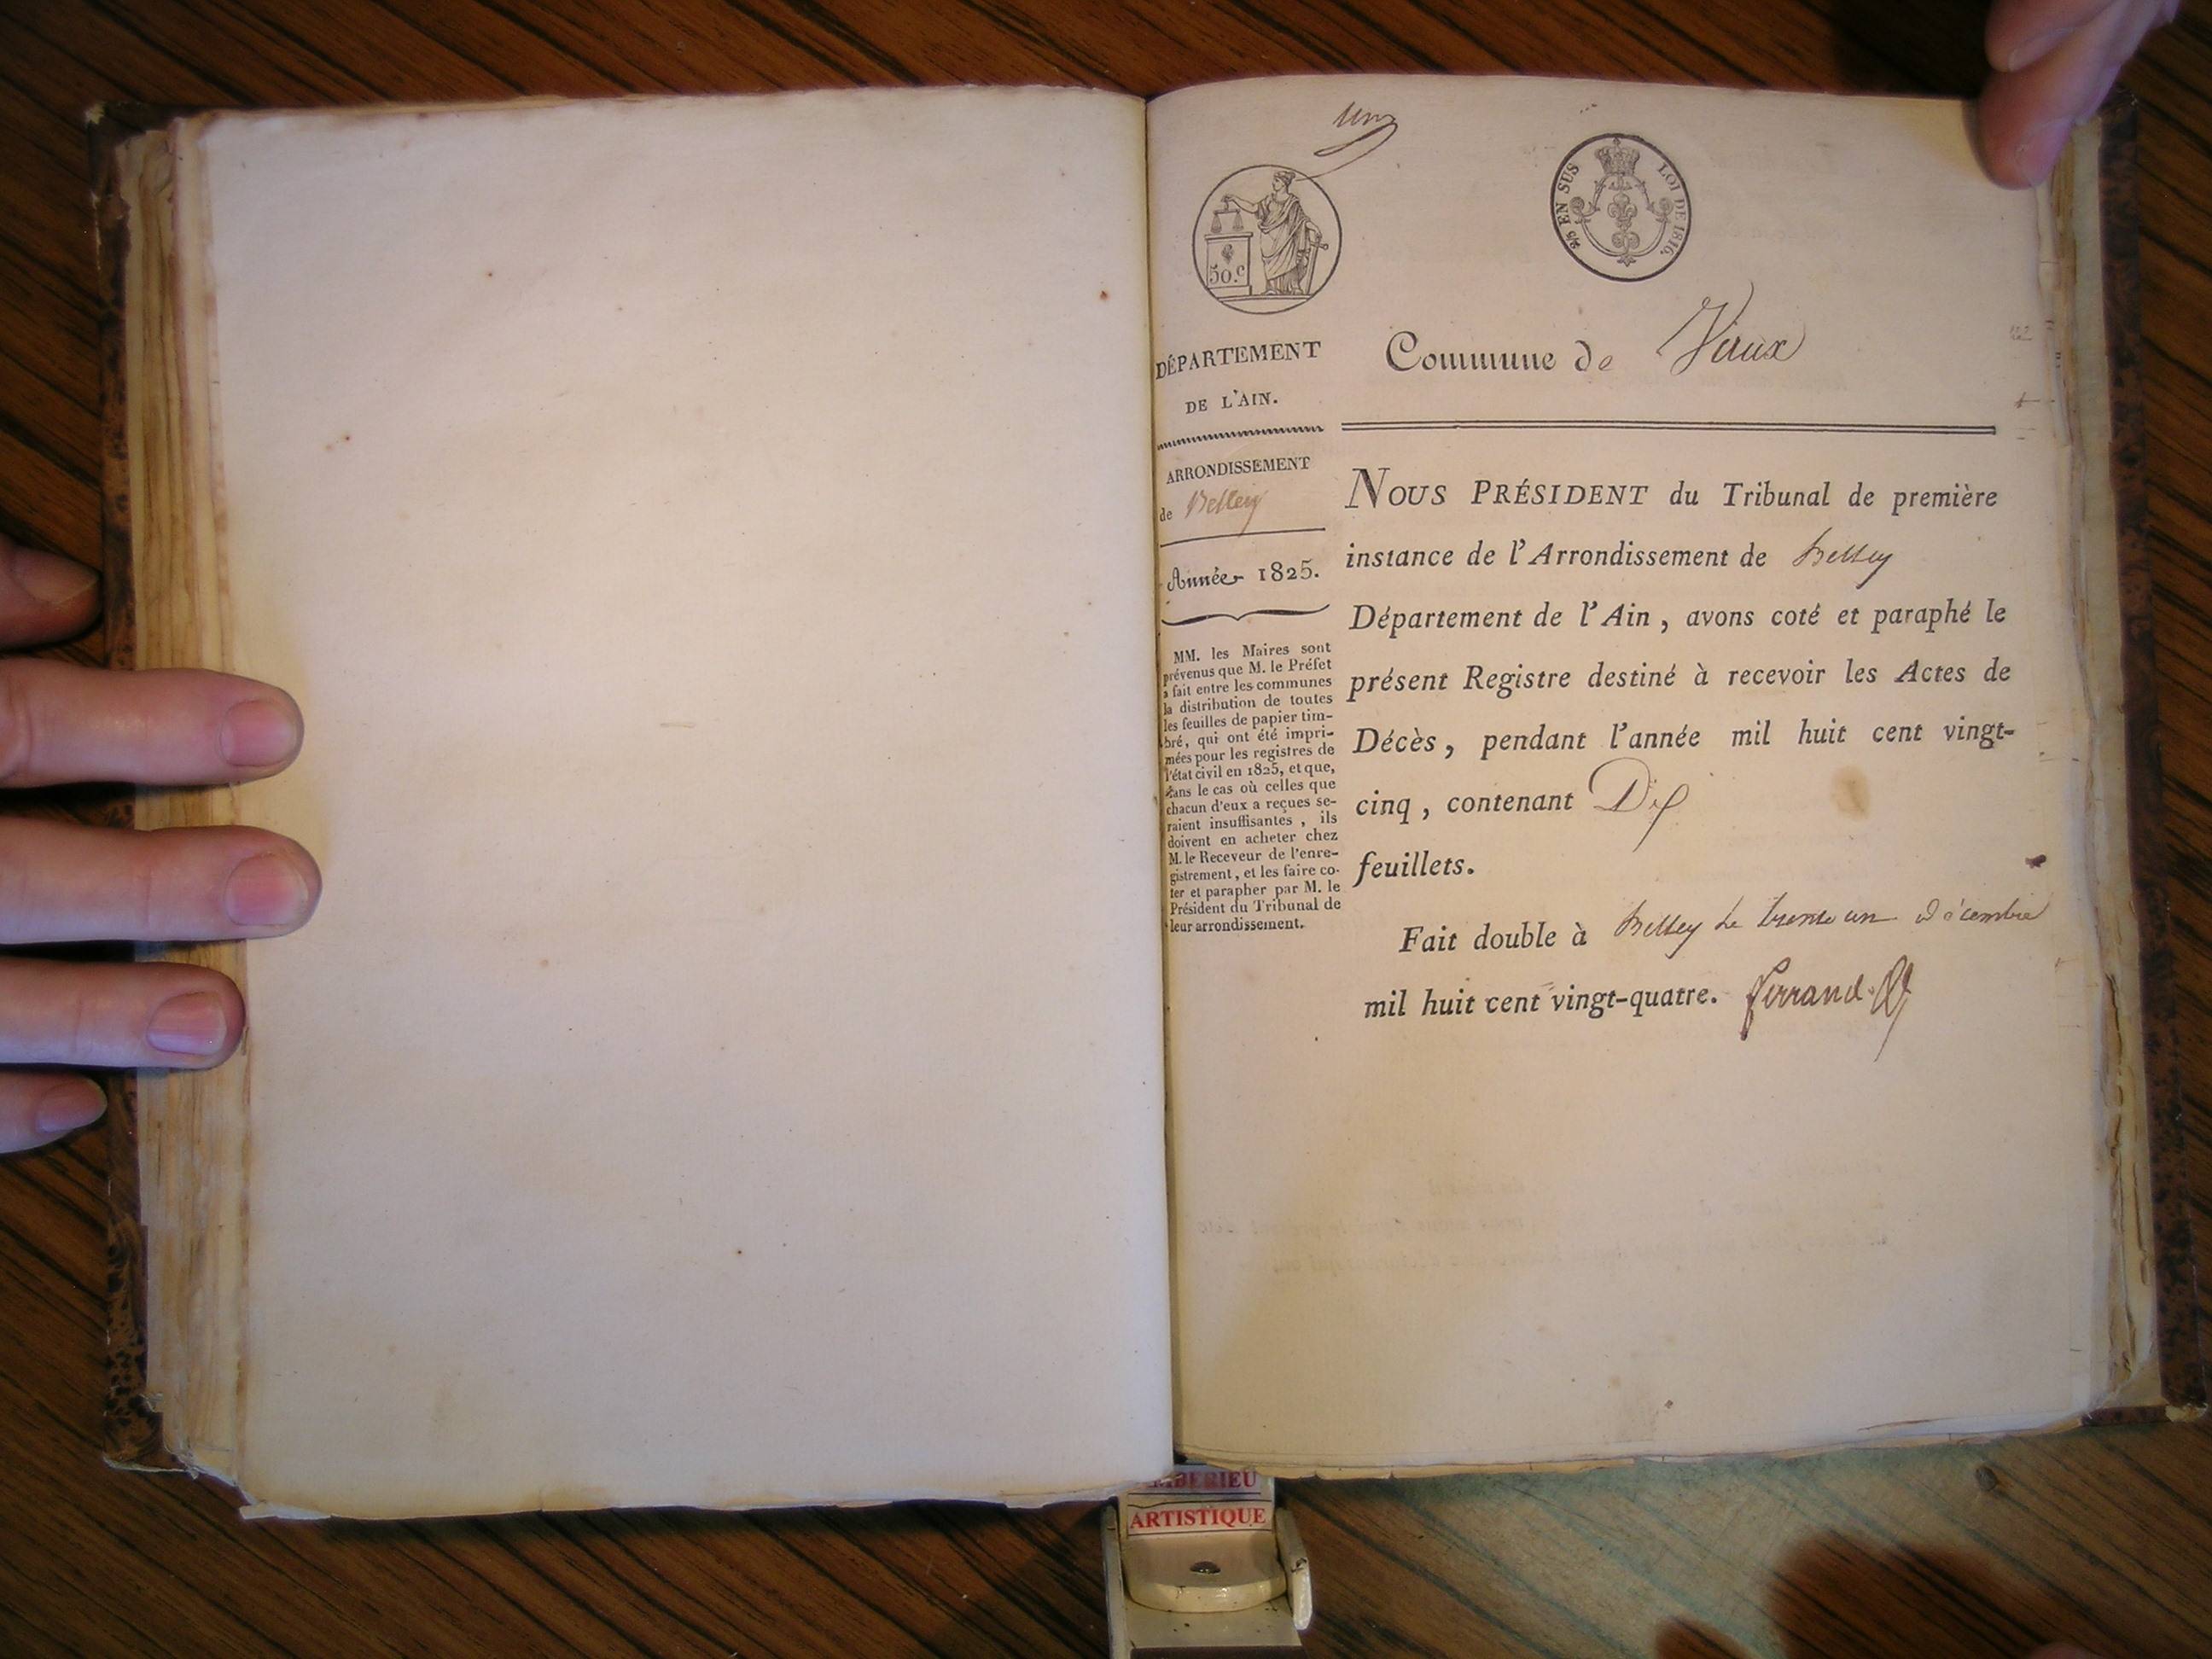 un
50.c
2/5 EN SUS LOI DE 1816.
DÉPARTEMENT
DE L'AIN.
ARRONDISSEMENT
de Belley
Année 1825.
MM. les Maires sont
prévenus que M. le Préfet
a fait entre les communes
la distribution de toutes
les feuilles de papier tim-
bré, qui ont été impri-
mées pour les registres de
l'état civil en 1825, et que,
dans le cas où celles que
chacun d'eux a reçues se-
raient insuffisantes, ils
doivent en acheter chez
M. le Receveur de l'enre-
gistrement, et les faire co-
ter et parapher par M. le
Président du Tribunal de
leur arrondissement.
Commune de Vaux
NOUS PRÉSIDENT du Tribunal de première
instance de l'Arrondissement de Belley
Département de l'Ain, avons coté et paraphé le
présent Registre destiné à recevoir les Actes de
Décès, pendant l'année mil huit cent vingt-
cinq, contenant Dix
feuillets.
Fait double à Belley Le trente un Décembre
mil huit cent vingt-quatre. Ferrand
ARTISTIQUE